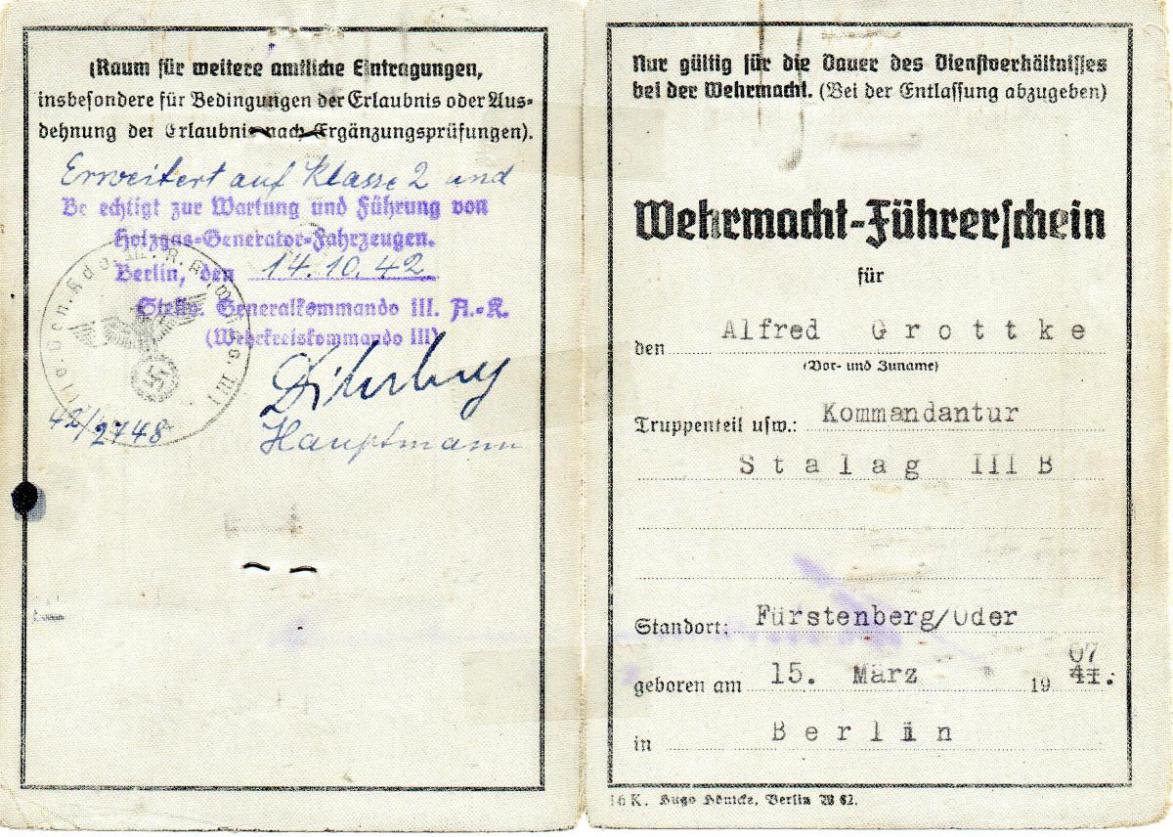 (Raum für weitere amtliche Eintragungen,
insbesondere für Bedingungen der Erlaubnis oder Aus-
dehnung der Erlaubnis nach Ergänzungsprüfungen).
Erweitert auf Klasse 2 und
Be echtigt zur Wartung und Führung von
Holzgas-Generator-Fahrzeugen.
Berlin, den 14.10.42
Stellv. Generalkommando III. A.-K.
(Wehrkreiskommando III)
42/2748
Hauptmann
Nur gültig für die Dauer des Dienstverhältnisses
bei der Wehrmacht. (Bei der Entlassung abzugeben)
Wehrmacht-Führerschein
für
den Alfred Grottke
(Vor- und Zuname)
Truppenteil usw.: Kommandantur
Stalag III B
Standort: Fürstenberg/Oder
geboren am 15. März 19 07
41.
in Berlin
16 K. Hugo Hönicke, Berlin W 62.